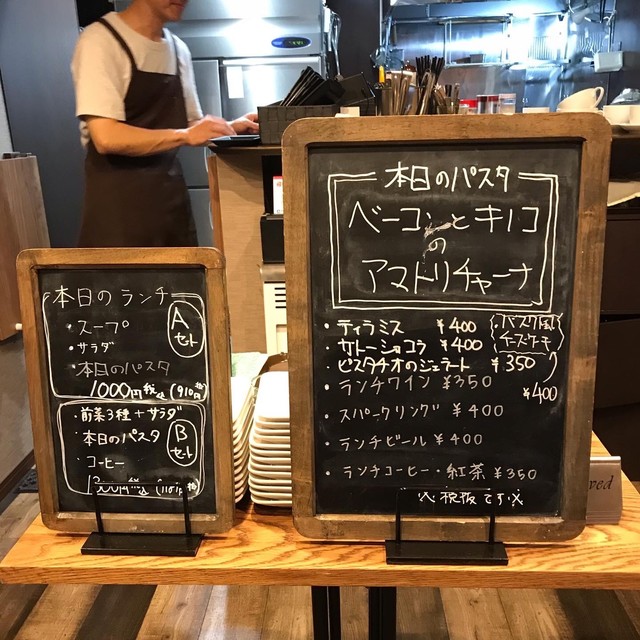 本日のランチ
・スープ
・サラダ
・本日のパスタ
Aセット
1000円
・前菜3種+サラダ
・本日のパスタ
・コーヒー
Bセット
本日のパスタ
ベーコンとキノコ
の
アマトリチャーナ
・ティラミス ¥400
・ガトーショコラ ¥400
・バスク風
チーズケーキ
¥400
・ピスタチオのジェラート ¥350
・ランチワイン ¥350
・スパークリング ¥400
・ランチビール ¥400
・ランチコーヒー・紅茶 ¥350
※税抜です※